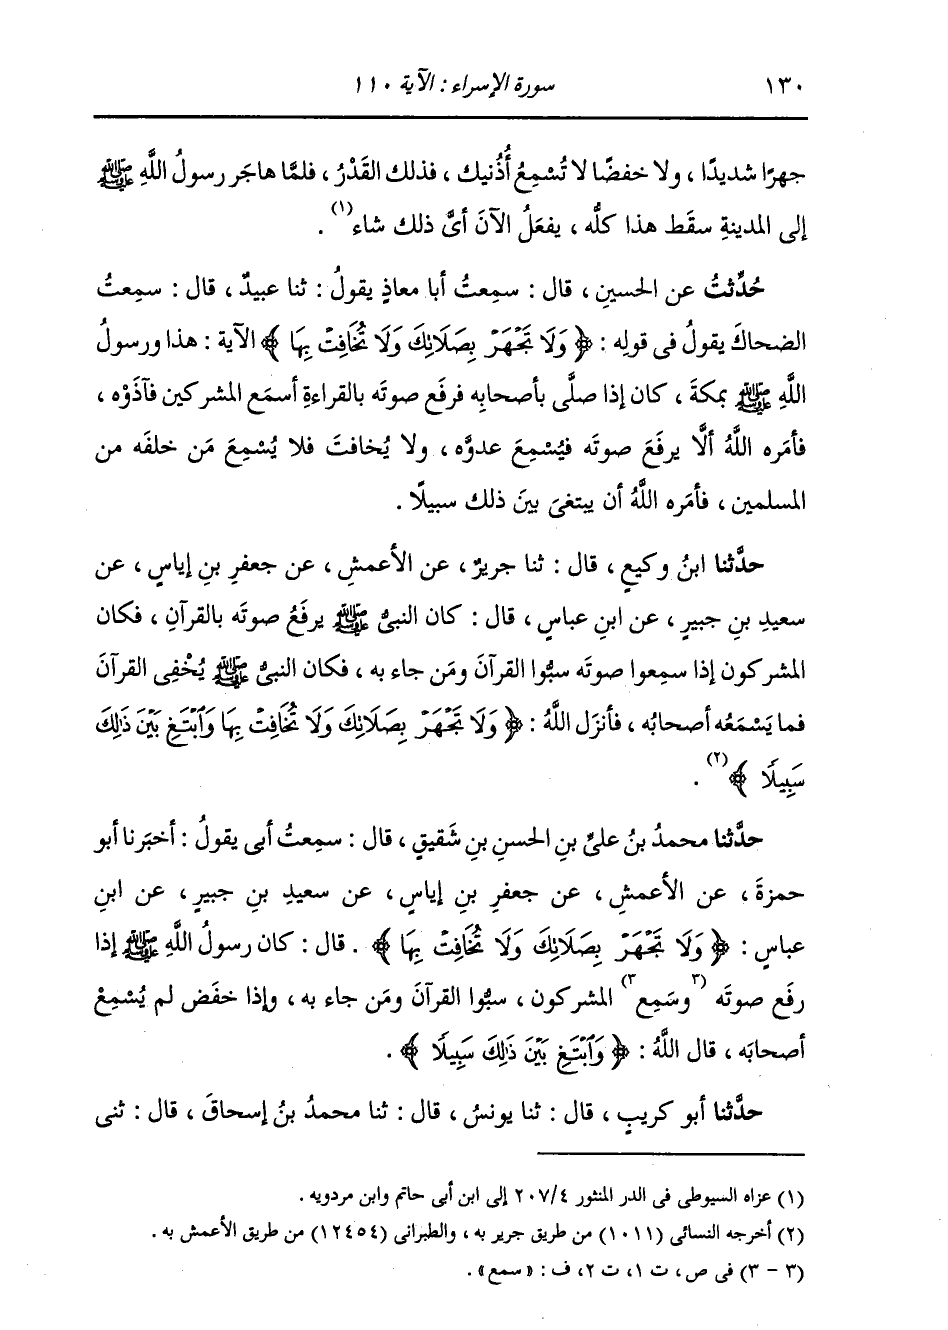 ١٣٠ سورة الإسراء : الآية ١١٠
جهرًا شديدًا ، ولا خفضًا لا تُسْمِعُ أُذُنيك ، فذلك القَدْرُ ، فلمَّا هاجَر رسولُ اللَّهِ ﷺ
إلى المدينةِ سقَط هذا كلُّه ، يفعَلُ الآنَ أىَّ ذلك شاء(١) .
حُدِّثتُ عن الحسينِ ، قال : سمِعتُ أبا معاذٍ يقولُ : ثنا عبيدٌ ، قال : سمِعتُ
الضحاكَ يقولُ فى قولِه : ﴿ وَلَا تَجْهَرْ بِصَلَاتِكَ وَلَا تُخَافِتْ بِهَا ﴾ الآية : هذا ورسولُ
اللَّهِ ﷺ بمكةَ ، كان إذا صلَّى بأصحابِه فرفَع صوتَه بالقراءةِ أسمَع المشركين فآذَوْه ،
فأمَره اللَّهُ ألَّا يرفَعَ صوتَه فيُسْمِعَ عدوَّه ، ولا يُخافتَ فلا يُسْمِعَ مَن خلفَه من
المسلمين ، فأمَره اللَّهُ أن يبتغىَ بينَ ذلك سبيلًا .
حدَّثنا ابنُ وكيعٍ ، قال : ثنا جريرٌ ، عن الأعمشِ ، عن جعفرِ بنِ إياسٍ ، عن
سعيدِ بنِ جبيرٍ ، عن ابنِ عباسٍ ، قال : كان النبىُّ ﷺ يرفَعُ صوتَه بالقرآنِ ، فكان
المشركون إذا سمِعوا صوتَه سبُّوا القرآنَ ومَن جاء به ، فكان النبىُّ ﷺ يُخْفِى القرآنَ
فما يَسْمَعُه أصحابُه ، فأنزَل اللَّهُ : ﴿ وَلَا تَجْهَرْ بِصَلَاتِكَ وَلَا تُخَافِتْ بِهَا وَٱبْتَغِ بَيْنَ ذَٰلِكَ
سَبِيلًا ﴾(٢) .
حدَّثنا محمدُ بنُ علىِّ بنِ الحسنِ بنِ شَقيقٍ ، قال : سمِعتُ أبى يقولُ : أخبَرنا أبو
حمزةَ ، عن الأعمشِ ، عن جعفرِ بنِ إياسٍ ، عن سعيدِ بنِ جبيرٍ ، عن ابنِ
عباسٍ : ﴿ وَلَا تَجْهَرْ بِصَلَاتِكَ وَلَا تُخَافِتْ بِهَا ﴾ . قال : كان رسولُ اللَّهِ ﷺ إذا
رفَع صوتَه (٣وسَمِع٣) المشركون ، سبُّوا القرآنَ ومَن جاء به ، وإذا خفَض لم يُسْمِعْ
أصحابَه ، قال اللَّهُ : ﴿ وَٱبْتَغِ بَيْنَ ذَٰلِكَ سَبِيلًا ﴾ .
حدَّثنا أبو كريبٍ ، قال : ثنا يونسُ ، قال : ثنا محمدُ بنُ إسحاقَ ، قال : ثنى
(١) عزاه السيوطى فى الدر المنثور ٢٠٧/٤ إلى ابن أبى حاتم وابن مردويه .
(٢) أخرجه النسائى (١٠١١) من طريق جرير به ، والطبرانى (١٢٤٥٤) من طريق الأعمش به .
(٣ - ٣) فى ص ، ت ١، ت ٢، ف : « سمع » .